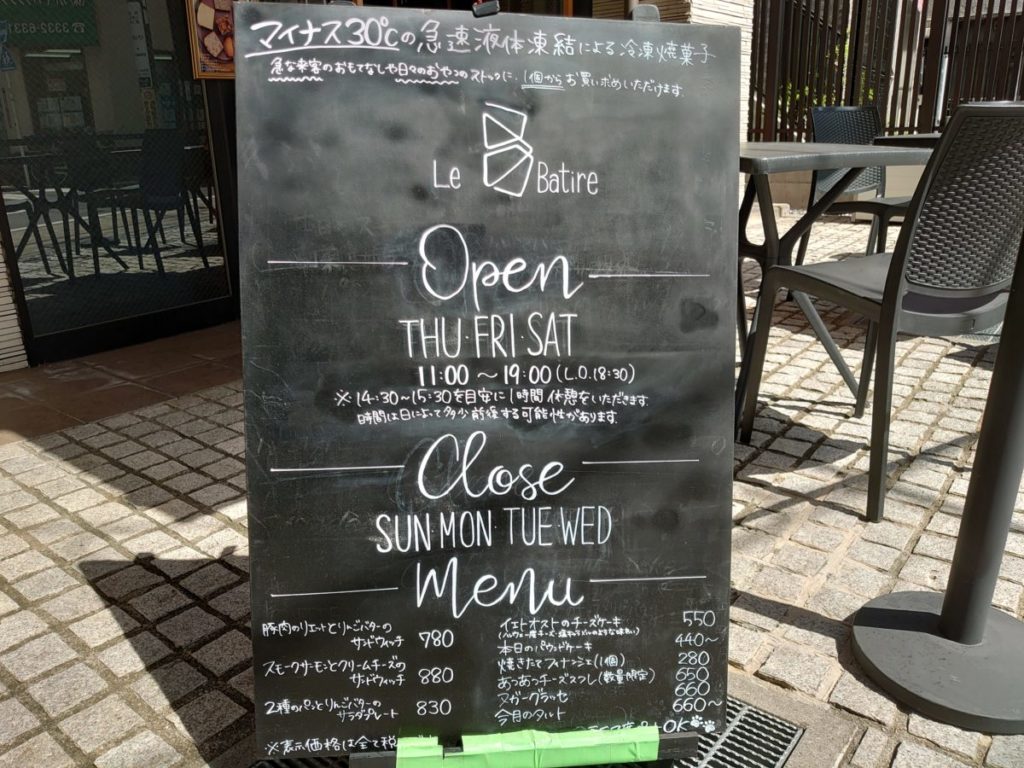 マイナス30℃の急速液体凍結による冷凍焼菓子
急な来客のおもてなしや日々のおやつのストックに、1個からお買い求めいただけます。
Le Batire
Open
THU・FRI・SAT
11:00 〜 19:00 (L.O.18:30)
※14:30~15:30を目安に1時間休憩をいただきます。
時間は日によって多少前後する可能性があります。
Close
SUN MON TUE WED
Menu
豚肉のリエットとりんごバターの
サンドウィッチ 780
スモークサーモンとクリームチーズの
サンドウィッチ 880
2種のパンとりんごバターの
サラダプレート 830
※表示価格は全て税
イェトオストのチーズケーキ 550
本日のパウンドケーキ 440~
焼きたてフィナンシェ(1個) 280
あつあつチーズスフレ(数量限定) 650
ヌガーグラッセ 660
今月のタルト 660~
OK